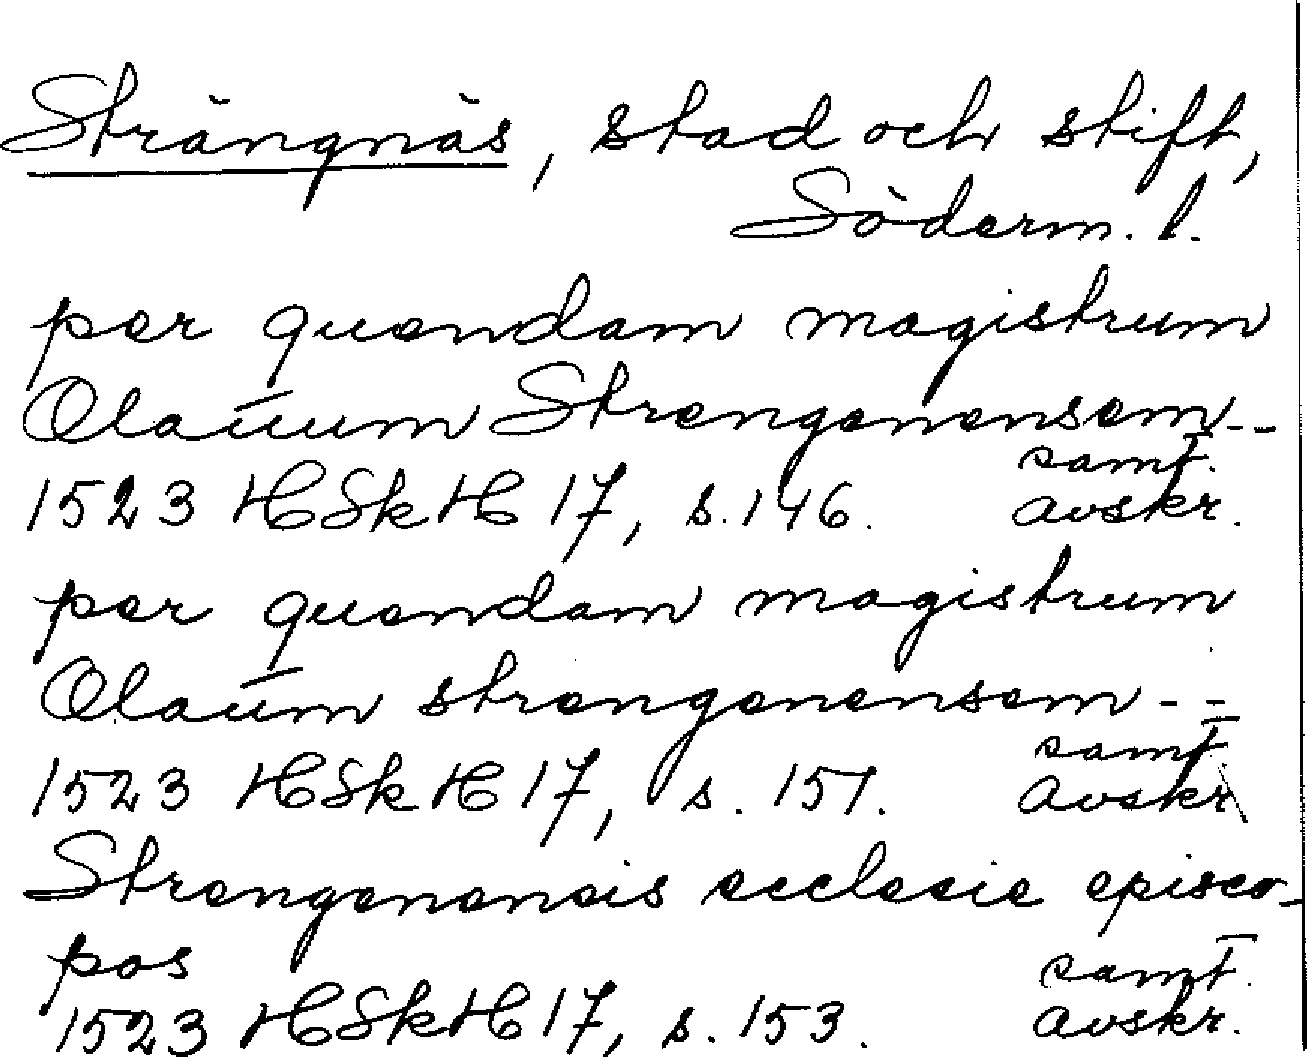 Strängnäs, stad och stift,
Söderm. l.
per quendam magistrum
Olauum Strengenensem --
samt.
1523 HSkH 17, s. 146. avskr.
per quendam magistrum
Olaum strengenensem --
samt.
1523 HSkH 17, s. 151. avskr.
Strengenensis ecclesie episco-
pos
samt.
1523 HSkH 17, s. 153. avskr.